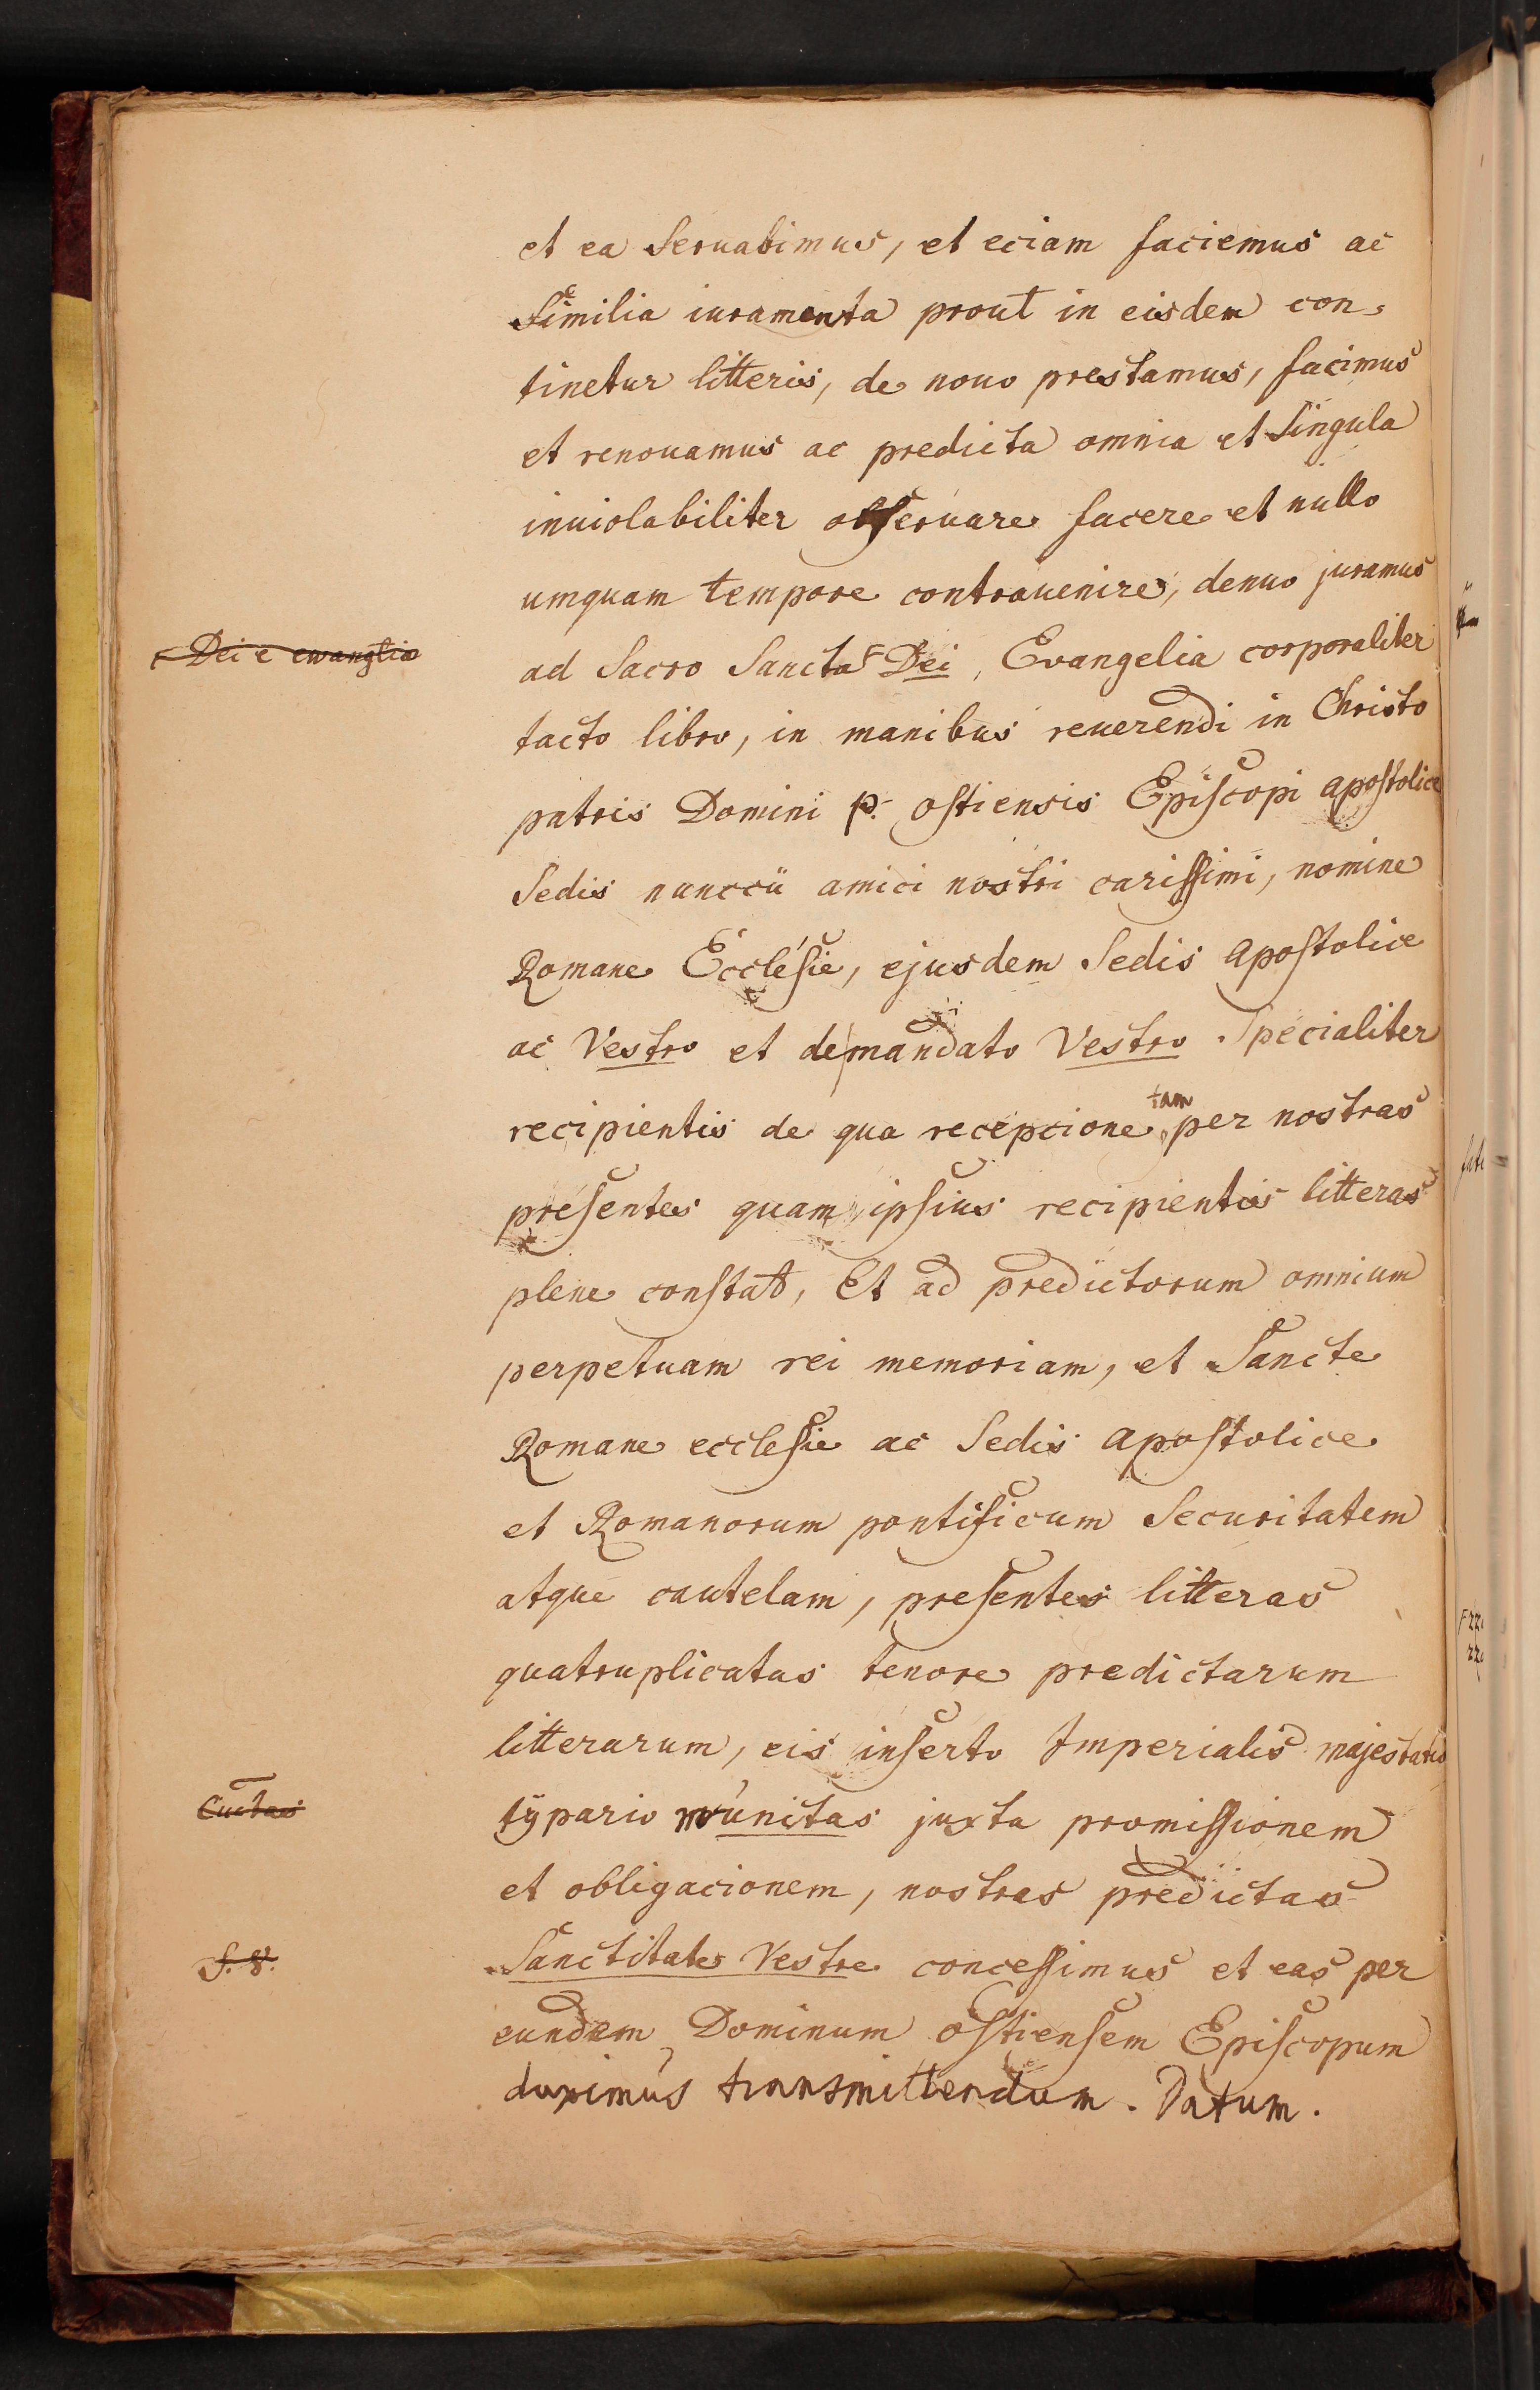 et ea servabimus, et eciam faciemus ac
similia iuramenta prout in eisdem con,
tinetur litteris, de nouo prestamus, facimus
et renouamus ac predicta omnia et singula
inuiolabiliter obseruare facere et nullo
umquam tempore contrauenire, denuo juramus
Dei e ewanglia
ad Sacro Sancta Dei, Evangelia corporaliter
tacto libro, in manibus reuerendi in Christo
patris Domini p. ostiensis Episcopi apostolice
Sedis nunccii amici nostri carissimi, nomine
Romane Ecclesie, ejusdem Sedis apostolice
ac Vestro et de mandato Vestro Specialiter
recipientis de qua recepcione tam per nostras
presentes quam ipsius recipientis litteras
plene constat, Et ad predictorum omnium
perpetuam rei memoriam, et Sancte
Romane ecclesie ac Sedis apostolice
et Romanorum pontificum Securitatem
atque cautelam, presentes litteras
quatruplicatas tenore predictarum
litterarum, eis inserto Imperialis majestatis
typario munitas juxta promissionem
et obligacionem, nostras predictas
S. V.
Sanctitate Vestre concessimus et eas per
eundem Dominum ostiensem Episcopum
duximus transmittendum. Datum.